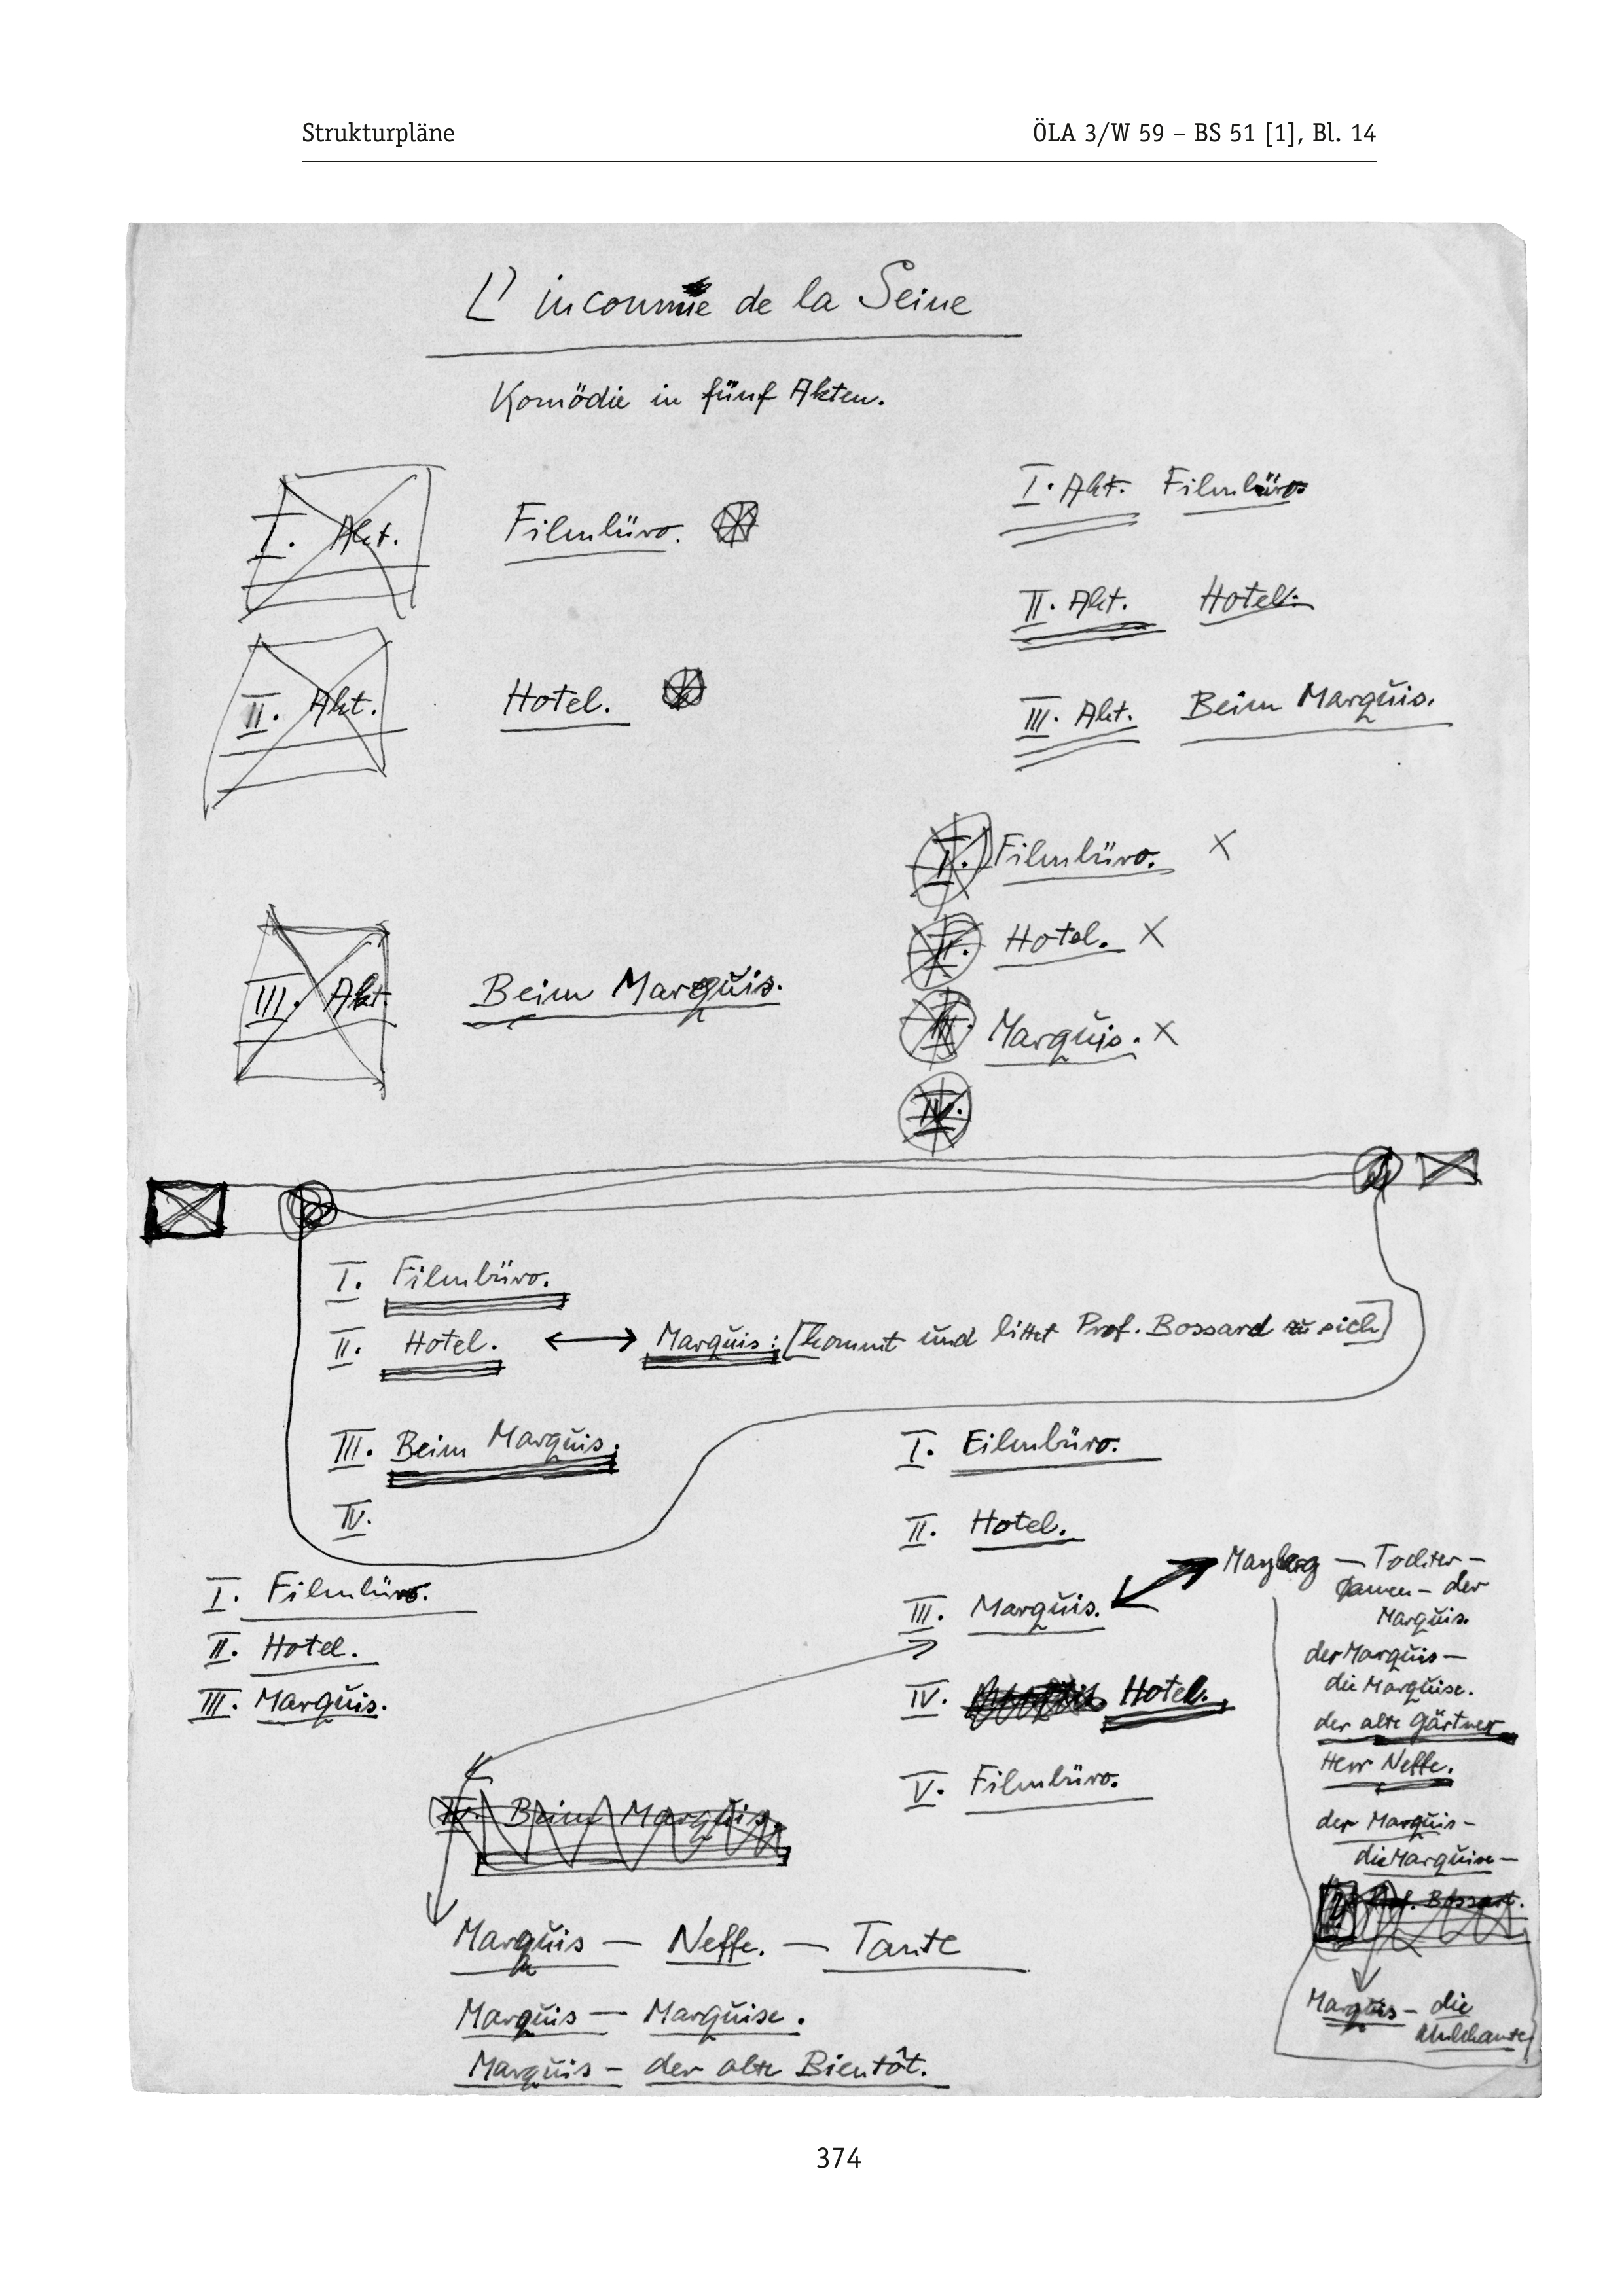 Strukturpläne
ÖLA 3/W 59 – BS 51 [1], Bl. 14
L' inconnue de la Seine
Komödie in fünf Akten.
I. Akt. Filmbüro.
II. Akt. Hotel.
III. Akt. Beim Marquis.
I. Akt. Filmbüro.
II. Akt. Hotel.
III. Akt. Beim Marquis.
I. Filmbüro. X
II. Hotel. X
III. Marquis. X
IV.
I. Filmbüro.
II. Hotel. ↔ Marquis: [kommt und bittet Prof. Bossard zu sich]
III. Beim Marquis.
IV.
I. Filmbüro.
II. Hotel.
III. Marquis.
I. Filmbüro.
II. Hotel.
III. Marquis.
IV. Hotel.
V. Filmbüro.
Beim Marquis.
Marquis — Neffe. — Tante
Marquis — Marquise.
Marquis — der alte Bientôt.
— Tochter —
der
Marquis.
der Marquis —
die Marquise.
der alte Gärtner
Herr Neffe.
der Marquis —
die Marquise —
Prof. Bossart.
Marquis — die
374